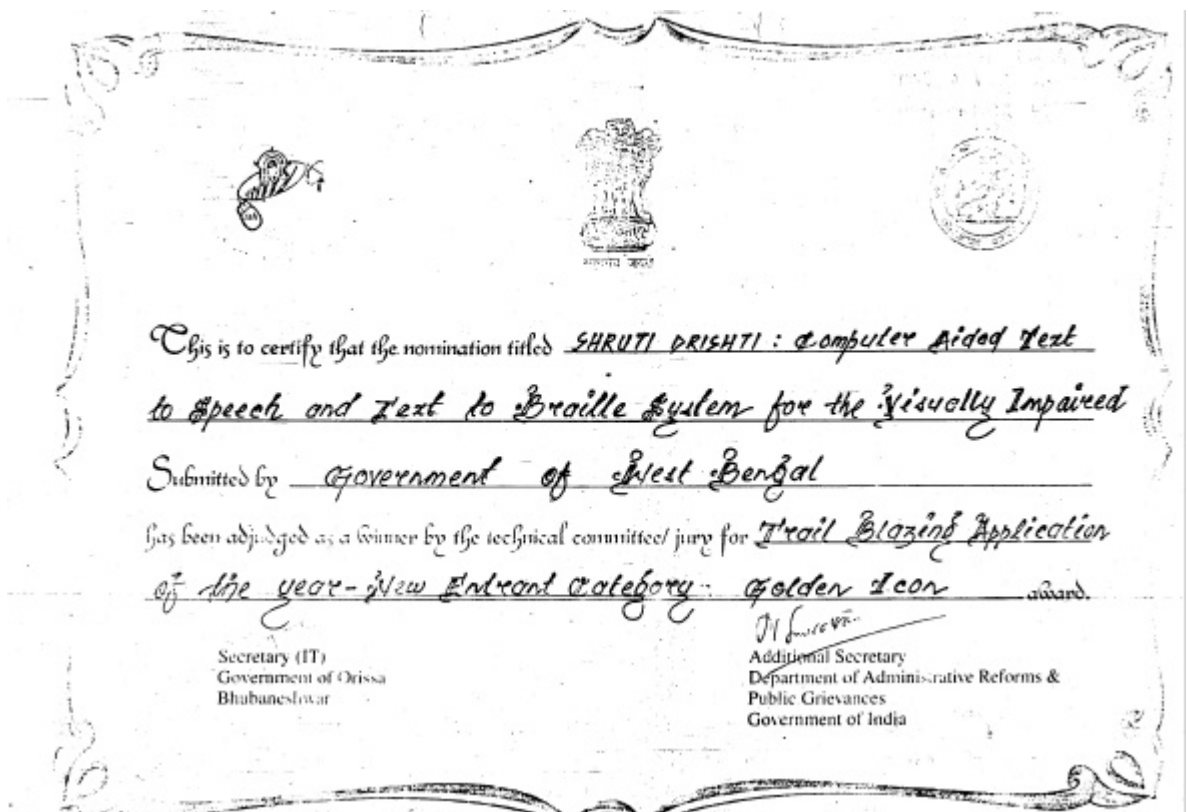 This is to certify that the nomination titled SHRUTI DRISHTI : Computer Aided Text
to Speech and Text to Braille System for the Visually Impaired
Submitted by Government of West Bengal
has been adjudged as a winner by the technical committee/ jury for Trail Blazing Application
of the year - New Entrant Category : Golden Icon award.
Secretary (IT)
Government of Orissa
Bhubaneshwar
Additional Secretary
Department of Administrative Reforms &
Public Grievances
Government of India